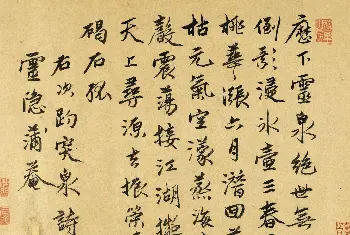 歷下靈泉絕世無
倒影浸冰壺三春
桃華漲六月潛回
枯元氣空濛蒸海
聲震蕩接江湖擬
天上尋源去振
碣石孤
右次趵突泉詩
靈隱蒲菴